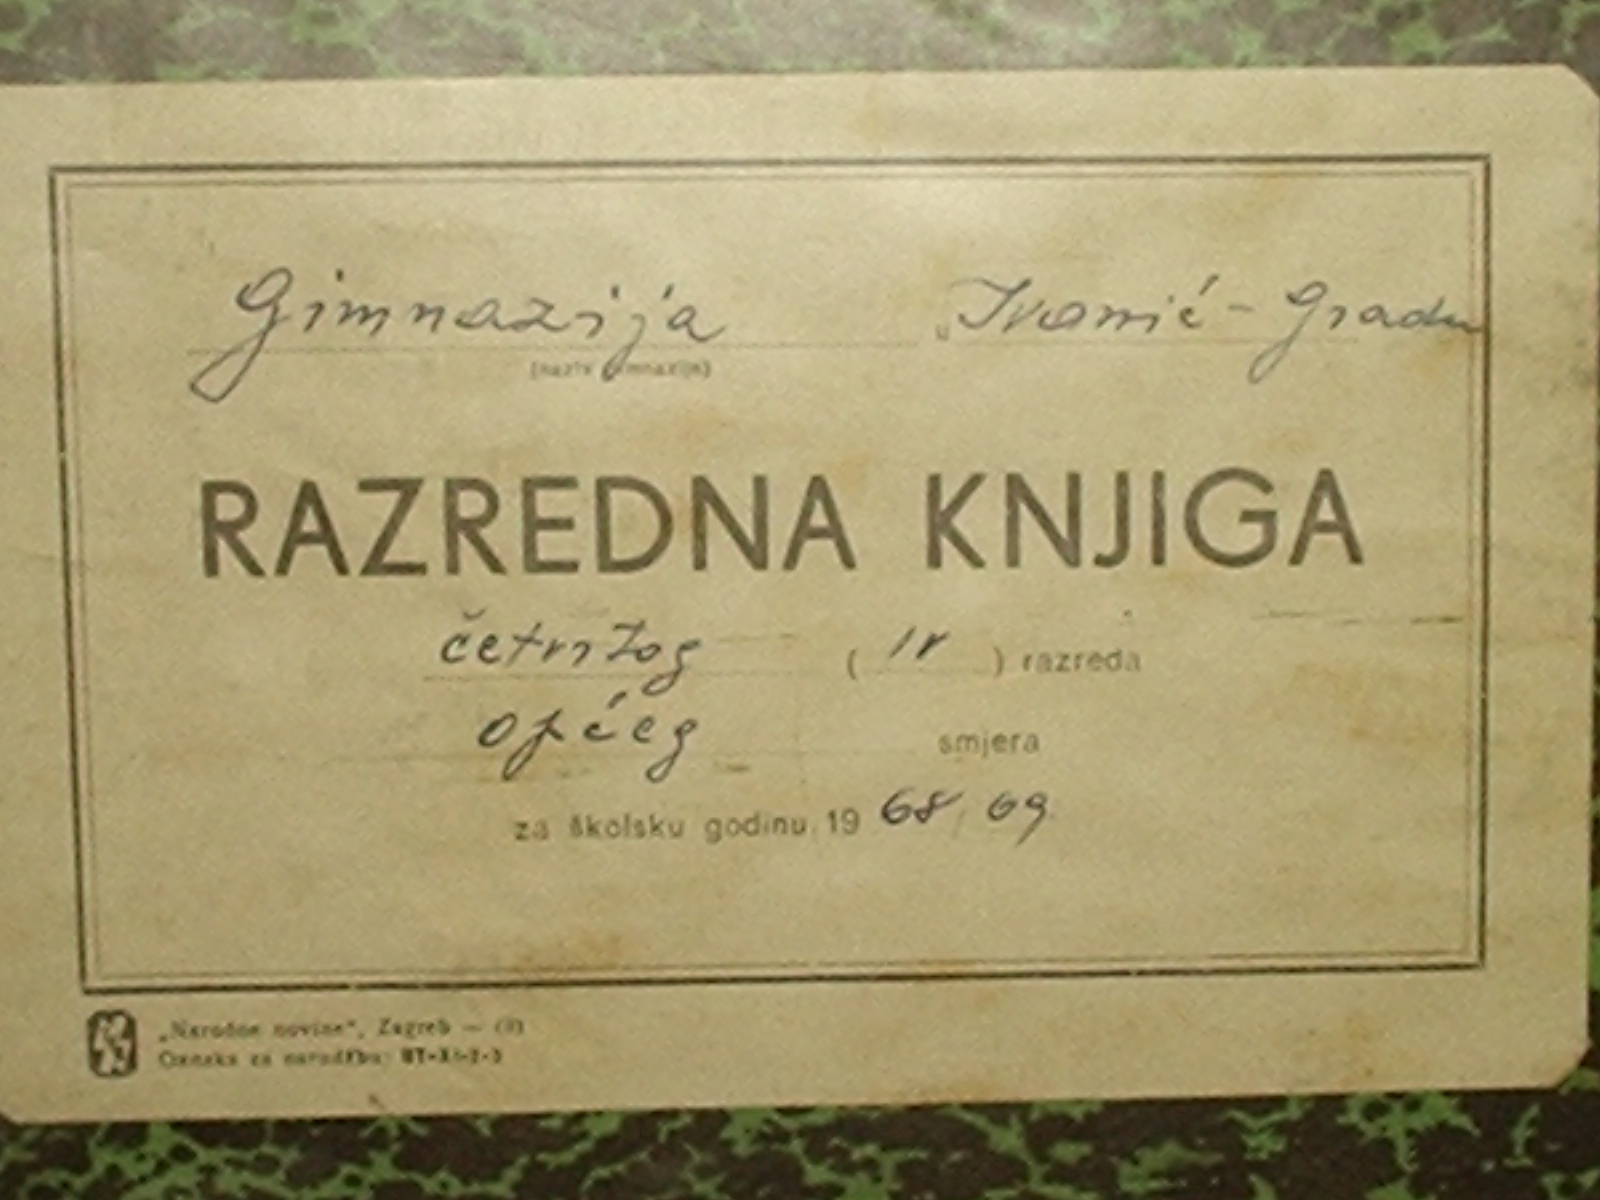 Gimnazija u Ivanić-Gradu
(naziv gimnazije)
RAZREDNA KNJIGA
četvrtog ( IV ) razreda
općeg smjera
za školsku godinu 19 68/69.
„Narodne novine“, Zagreb — (8)
Oznaka za narudžbu: